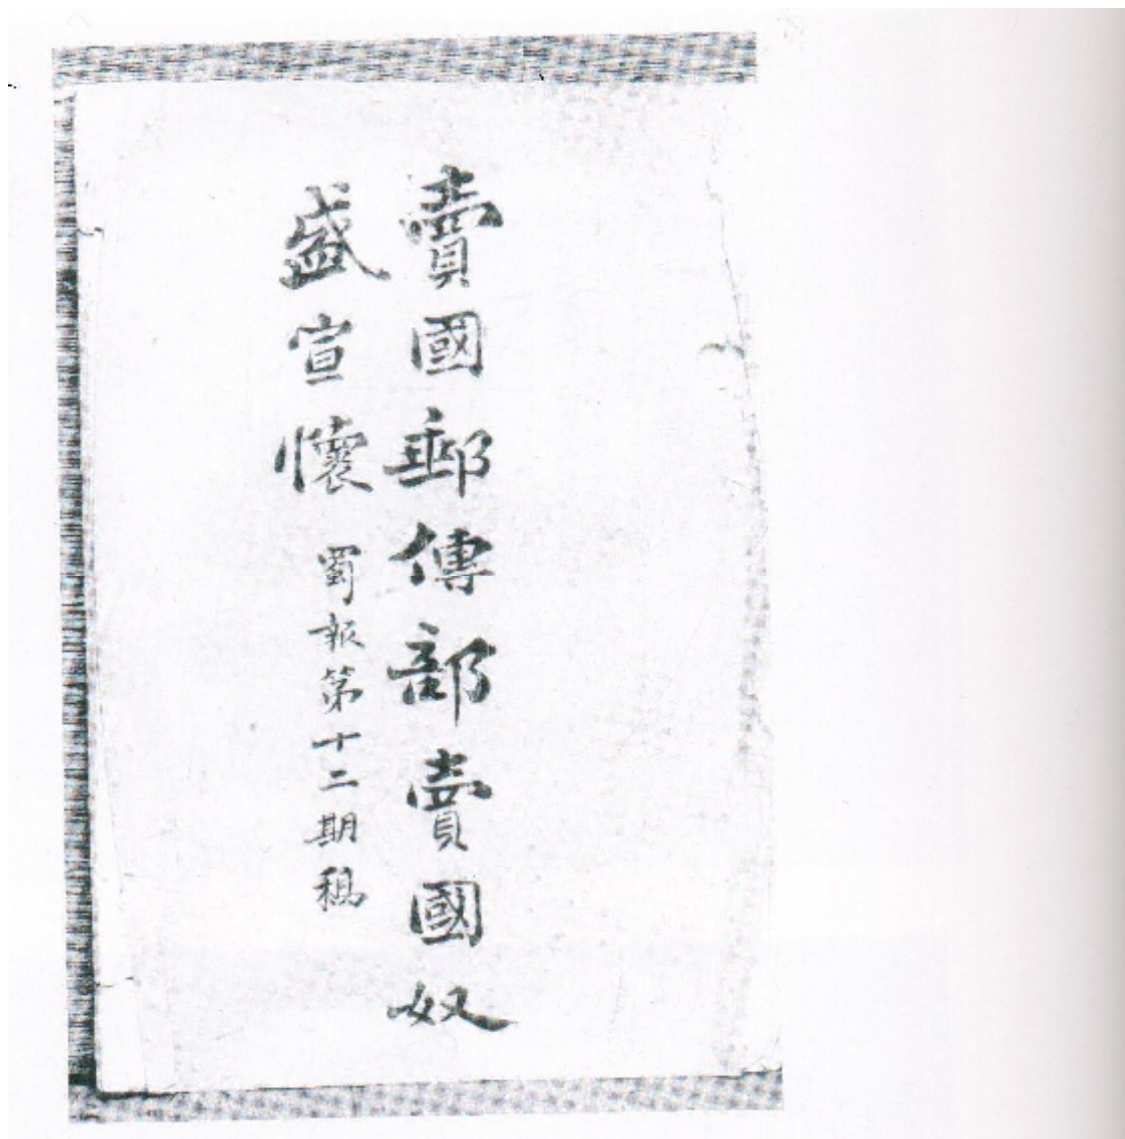 賣國郵傳部賣國奴
盛宣懷 蜀報第十二期稿